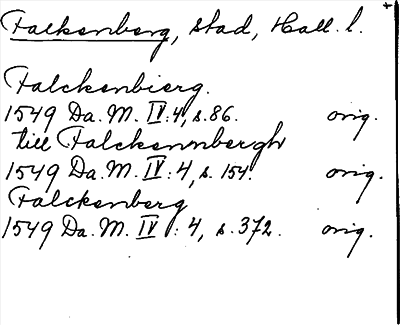 Falkenberg, stad, Hall. l.
Falckenbierg.
1549 Da. M. IV:4, s. 86. orig.
till Falckennbergh
1549 Da. M. IV:4, s. 154. orig.
Falckenberg
1549 Da. M. IV:4, s. 372. orig.